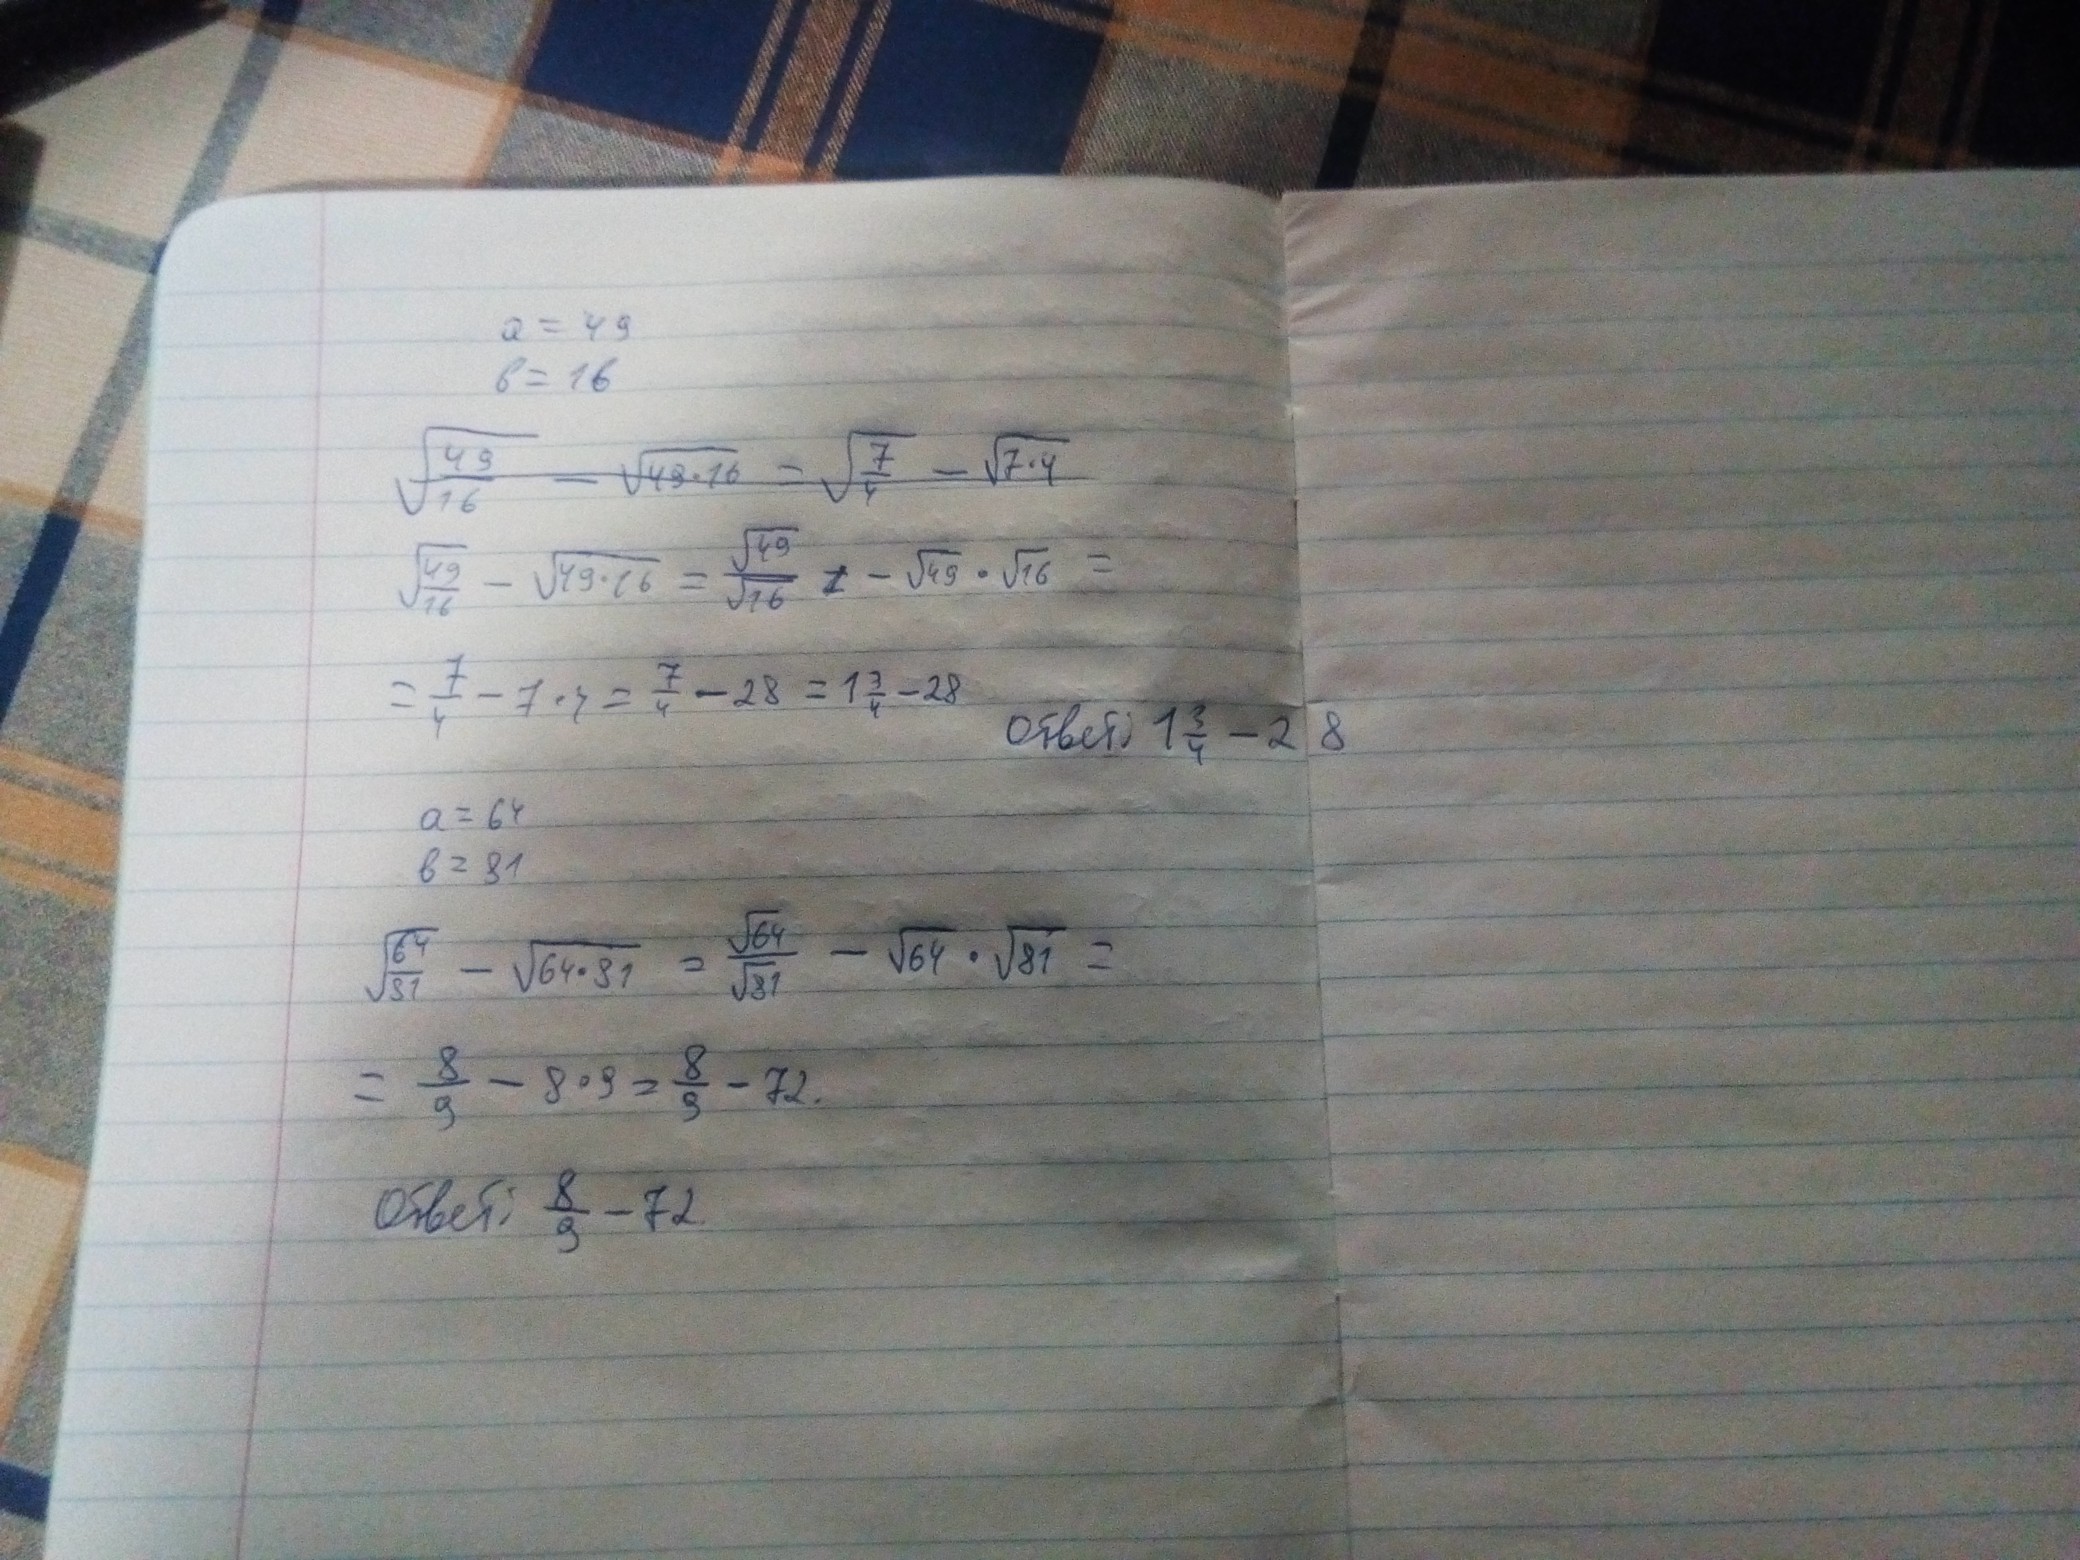 a = 49
в = 16
√(49/16) − √(49·16) = √(7/4) − √(7·4)
√(49/16) − √(49·16) = √49/√16 − √49 · √16 =
= 7/4 − 7·4 = 7/4 − 28 = 1 3/4 − 28
Ответ: 1 3/4 − 28
a = 64
в = 81
√(64/81) − √(64·81) = √64/√81 − √64 · √81 =
= 8/9 − 8·9 = 8/9 − 72.
Ответ: 8/9 − 72